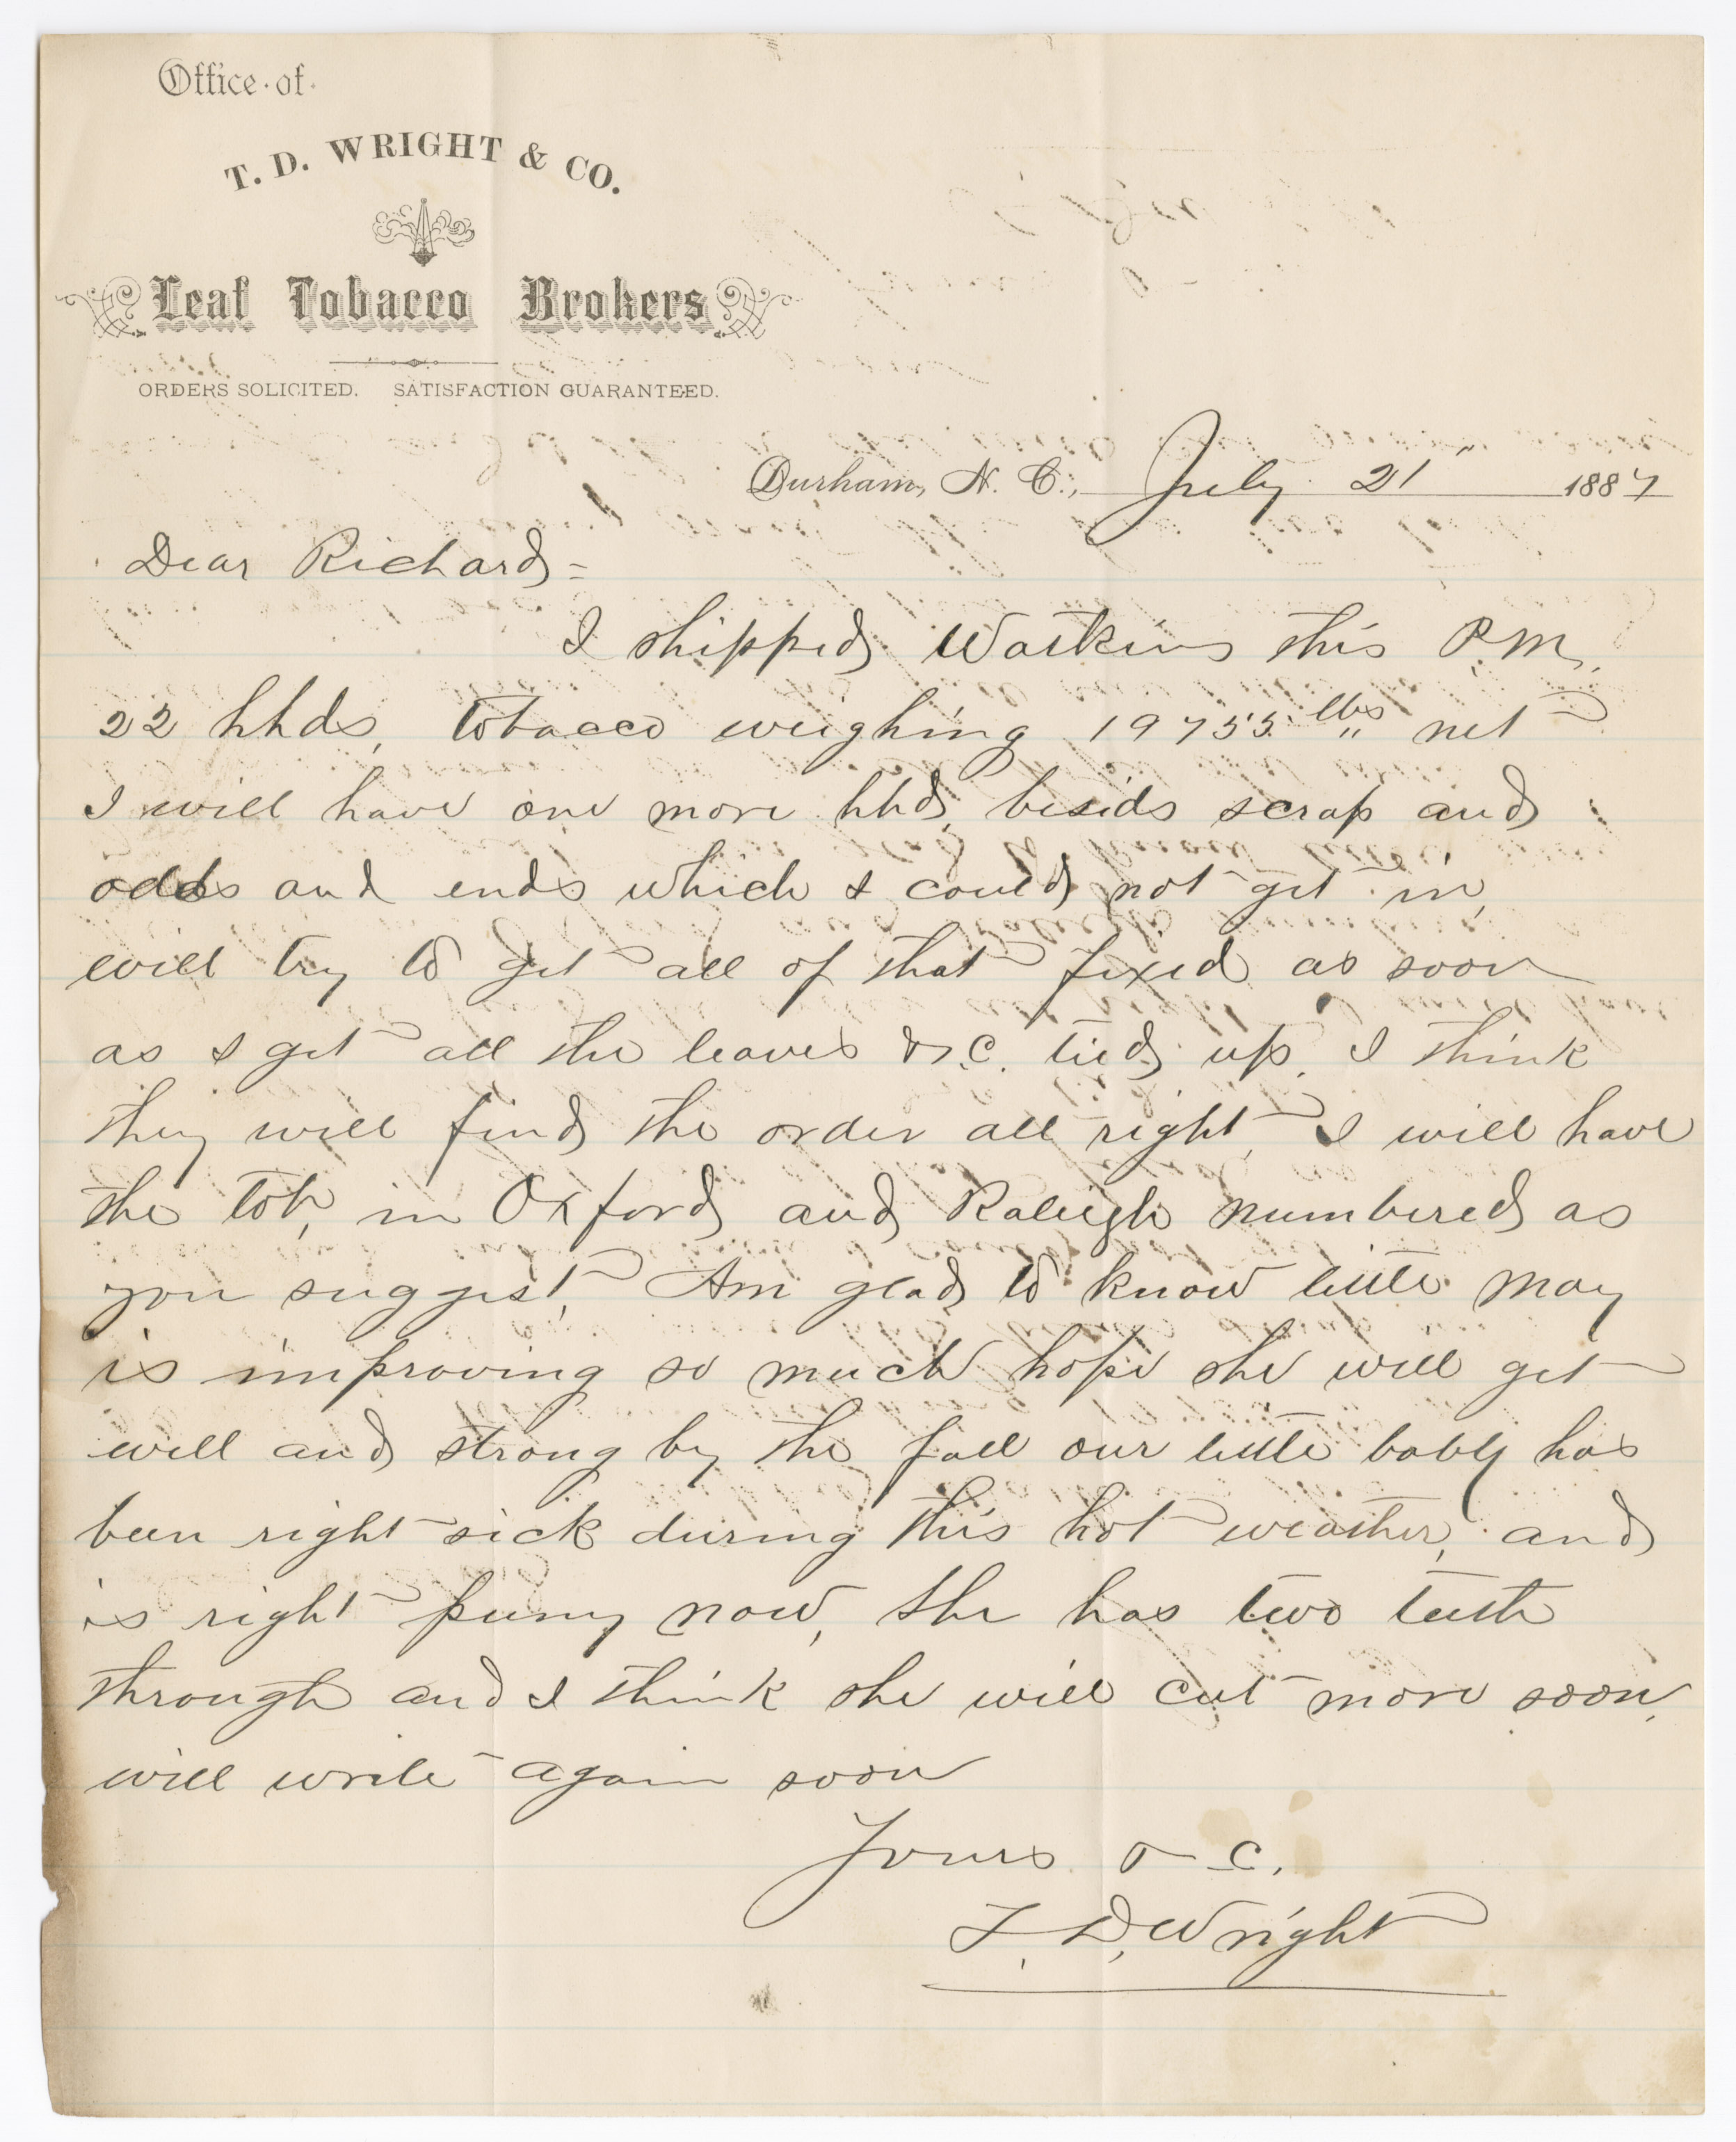 Office of
T. D. WRIGHT & CO.
Leaf Tobacco Brokers
ORDERS SOLICITED. SATISFACTION GUARANTEED.
Durham, N. C., July 21" 1887
Dear Richard =
I shipped Watkins this P.M.
22 hhds, tobacco weighing 19755 lbs net
I will have one more hhd, besids scrap and
odds and ends which I could not get in,
will try to get all of that fixed as soon
as I get all the leaves &c. tied up. I think
they will find the order all right, I will have
the tob, in Oxford and Raleigh numbered as
you suggest, Am glad to know little May
is improving so much hope she will get
well and strong by the fall our little baby has
been right sick during this hot weather, and
is right puny now, She has two teeth
through and I think she will cut more soon,
will write again soon
Yours &c.
T. D. Wright